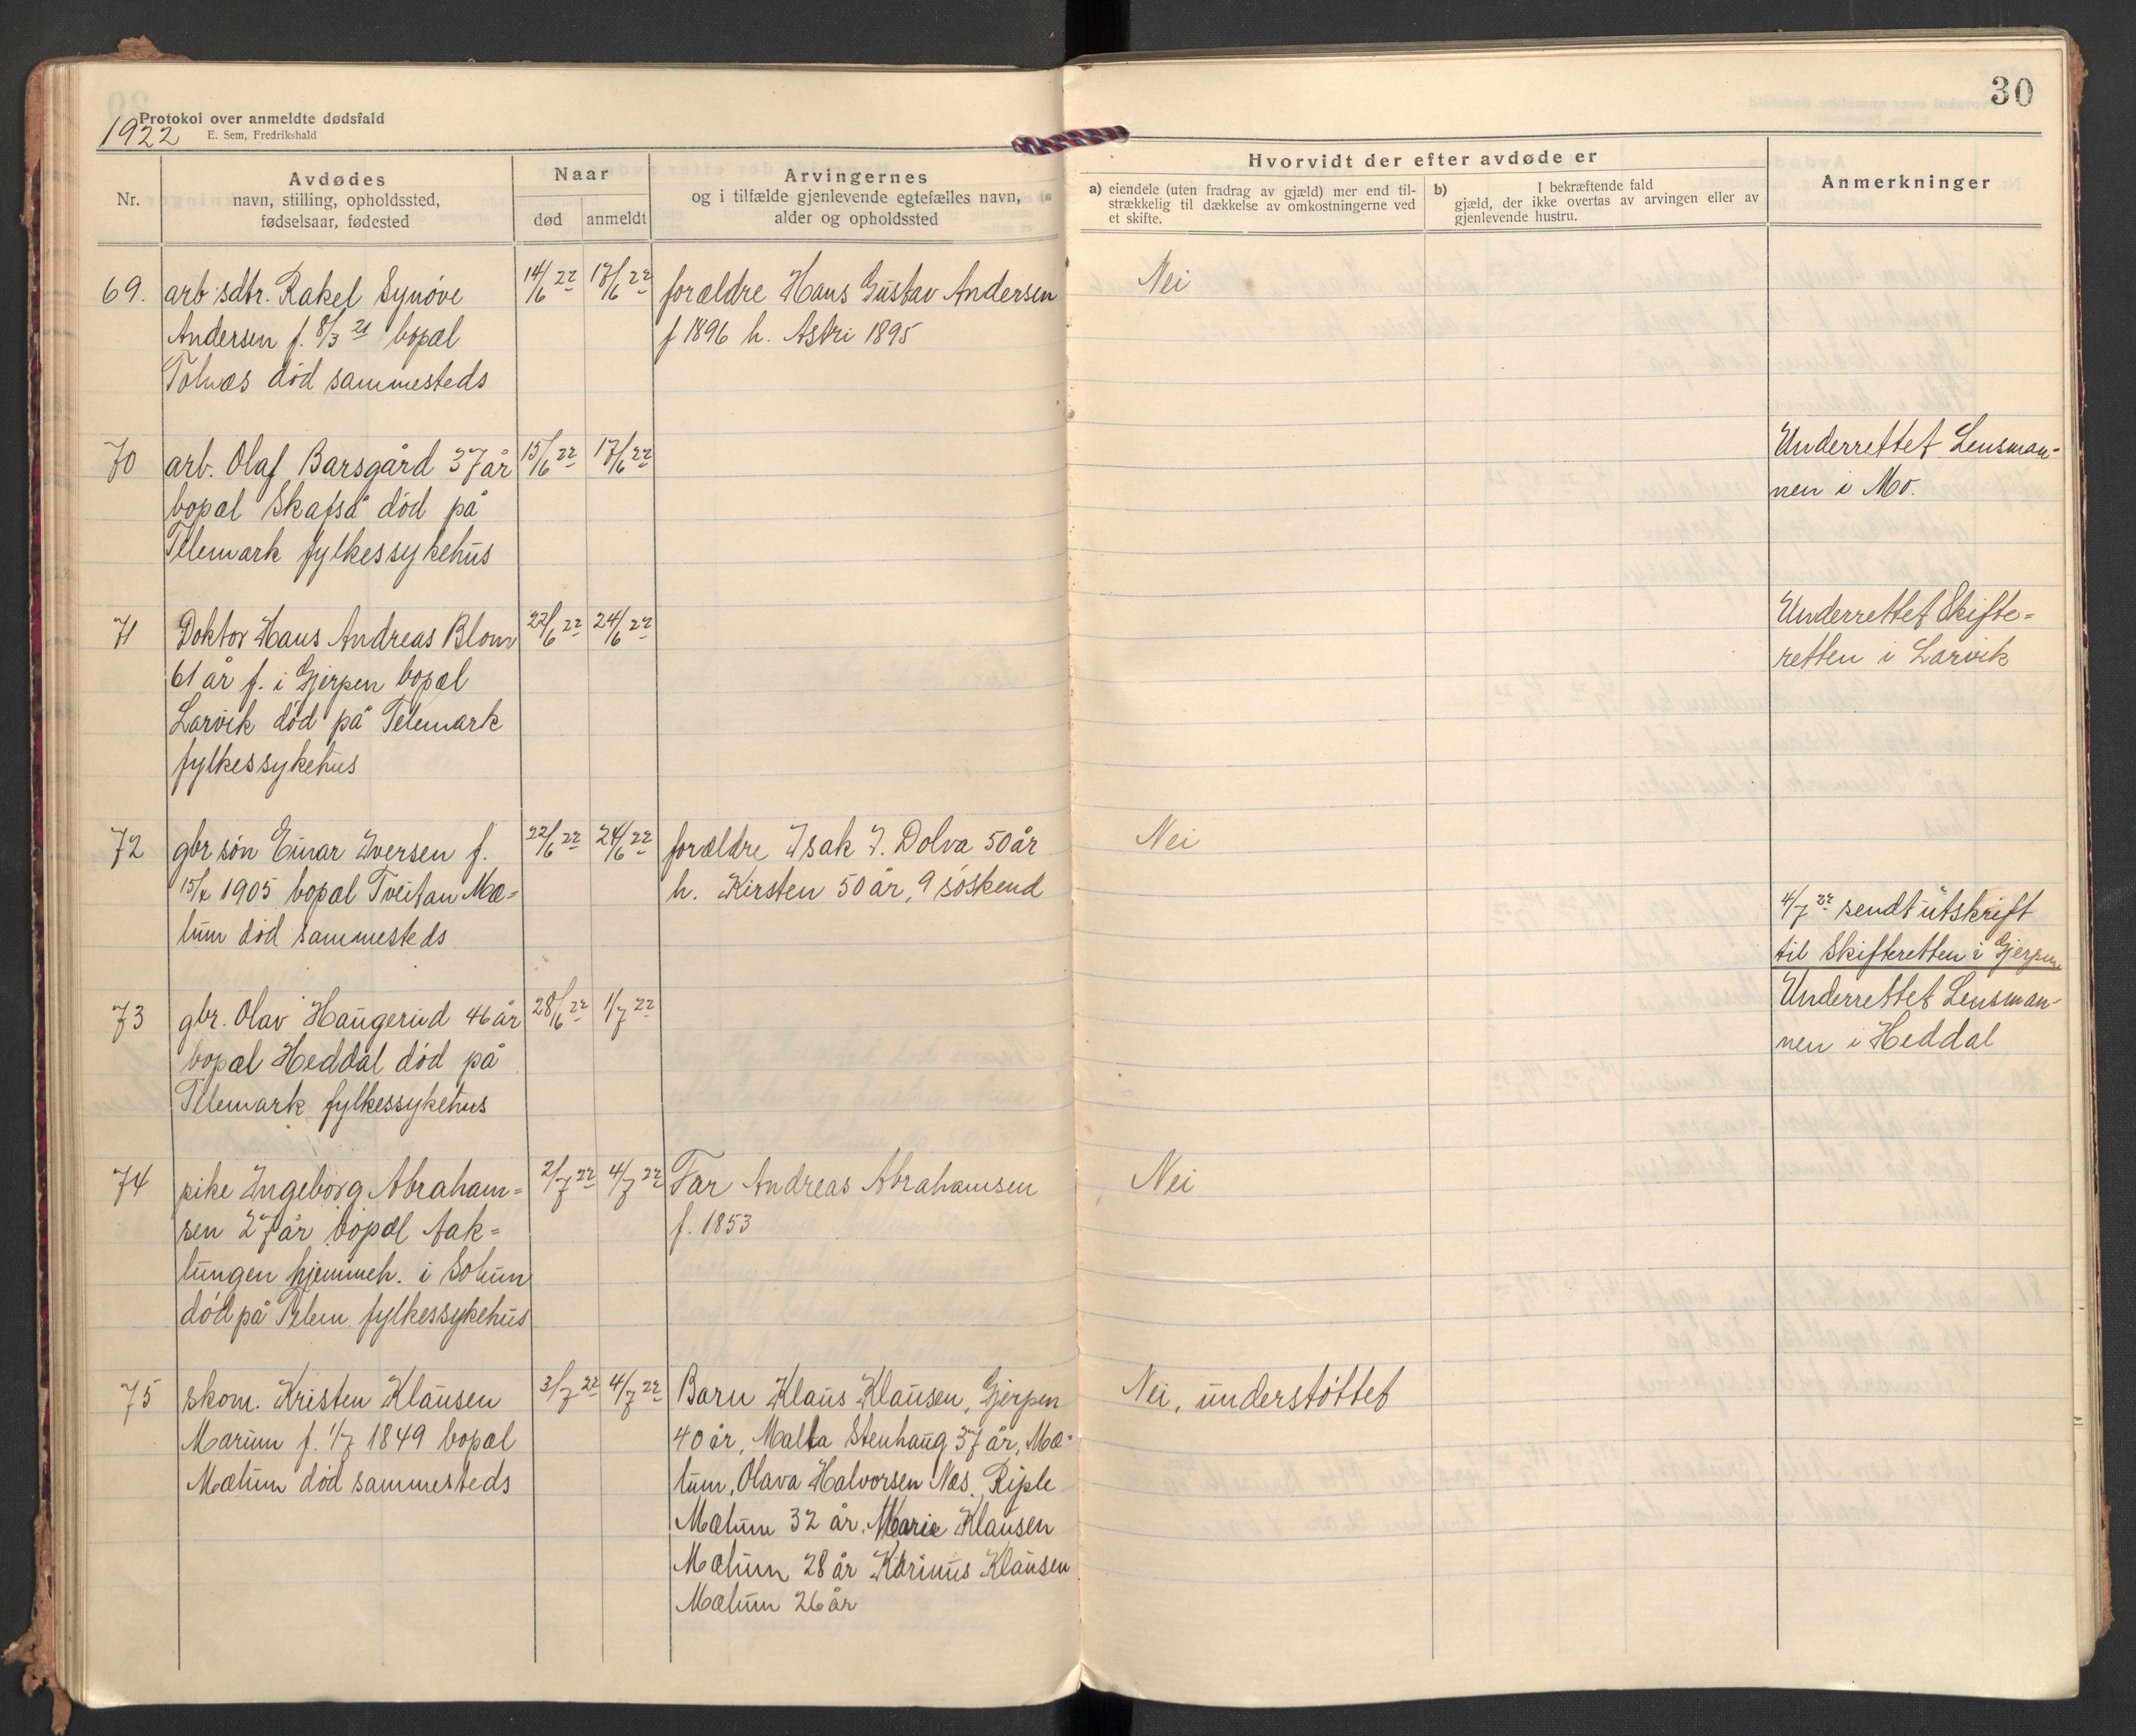 Protokol over anmeldte dødsfald
1922 E. Sem, Fredrikshald
30
Nr.
Avdødes
navn, stilling, opholdssted,
fødselsaar, fødested
Naar
død
anmeldt
Arvingernes
og i tilfælde gjenlevende egtefælles navn,
alder og opholdssted
Hvorvidt der efter avdøde er
a) eiendele (uten fradrag av gjæld) mer end til-
strækkelig til dækkelse av omkostningerne ved
et skifte.
b) I bekræftende fald
gjæld, der ikke overtas av arvingen eller av
gjenlevende hustru.
Anmerkninger
69. arb.sdtr. Rakel Synøve
Andersen f. 8/3 21 bopæl
Tolnæs død sammesteds
14/6 22
17/6 22
forældre Hans Gustav Andersen
f 1896 h. Astri 1895
Nei
70 arb. Olaf Barsgård 37 år
bopæl Skafså død på
Telemark fylkessykehus
15/6 22
17/6 22
Underrettet Lensman-
nen i Mo.
71 Doktor Hans Andreas Blom
61 år f. i Gjerpen bopæl
Larvik død på Telemark
fylkessykehus
22/6 22
24/6 22
Underrettet Skifte=
retten i Larvik
72 gbr søn Einar Iversen f.
1905 bopæl Tveitan Mæ=
lum død sammesteds
22/6 22
24/6 22
forældre Isak I. Dolva 50 år
h. Kirsten 50 år, 9 søskend
Nei
4/7 22 sendt utskrift
til Skifteretten i Gjerpen
73 gbr. Olav Haugerud 46 år
bopæl Heddal død på
Telemark fylkessykehus
28/6 22
1/7 22
Underrettet Lensman-
nen i Heddal
74 pike Ingeborg Abraham=
sen 27 år bopæl Aak=
lungen hjemmeh. i Solum
død på Telem. fylkessykehus
2/7 22
4/7 22
Far Andreas Abrahamsen
f. 1853
Nei
75 skom. Kristen Klausen
Marum f. 1/7 1849 bopæl
Mælum død sammesteds
3/7 22
4/7 22
Barn Klaus Klausen, Gjerpen
40 år, Malla Stenhaug 37 år, Mæ-
lum, Olava Halvorsen Næs. Riple
Mælum 32 år, Marie Klausen
Mælum 28 år Karinus Klausen
Mælum 26 år
Nei, understøttet